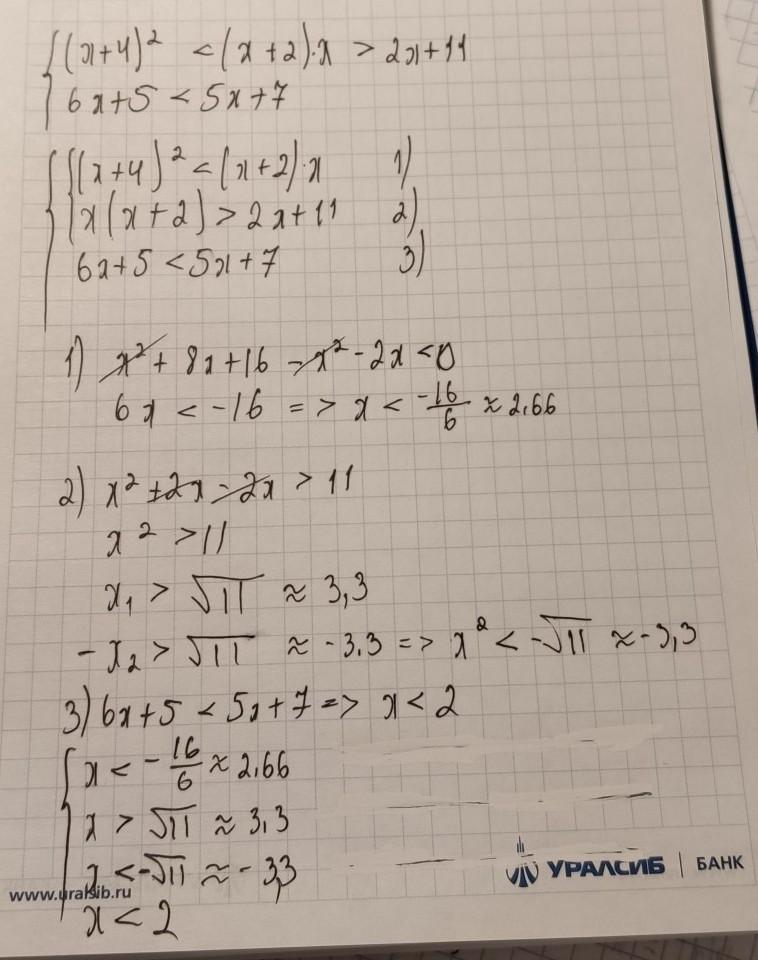 (x+4)² < (x+2)·x > 2x+11
6x+5 < 5x+7
(x+4)² < (x+2)·x 1)
x(x+2) > 2x+11 2)
6x+5 < 5x+7 3)
1) x² + 8x+16 - x² - 2x < 0
6x < -16 => x < -16/6 ≈ 2.66
2) x² + 2x - 2x > 11
x² > 11
x₁ > √11 ≈ 3,3
-x₂ > √11 ≈ -3.3 => x² < -√11 ≈ -3,3
3) 6x+5 < 5x+7 => x < 2
x < -16/6 ≈ 2.66
x > √11 ≈ 3,3
x < -√11 ≈ -3,3
x < 2
www.uralsib.ru
УРАЛСИБ | БАНК